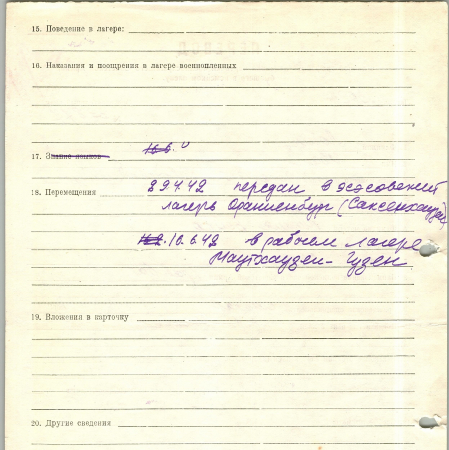 15. Поведение в лагере:
16. Наказания и поощрения в лагере военнопленных
17. Знание языков
18. Перемещения 29.4.42 передан в эсэсовский
лагерь Ораниенбург (Саксенхаузен)
10.6.42 в рабочем лагере
Маутхаузен - Гузен
19. Вложения в карточку
20. Другие сведения